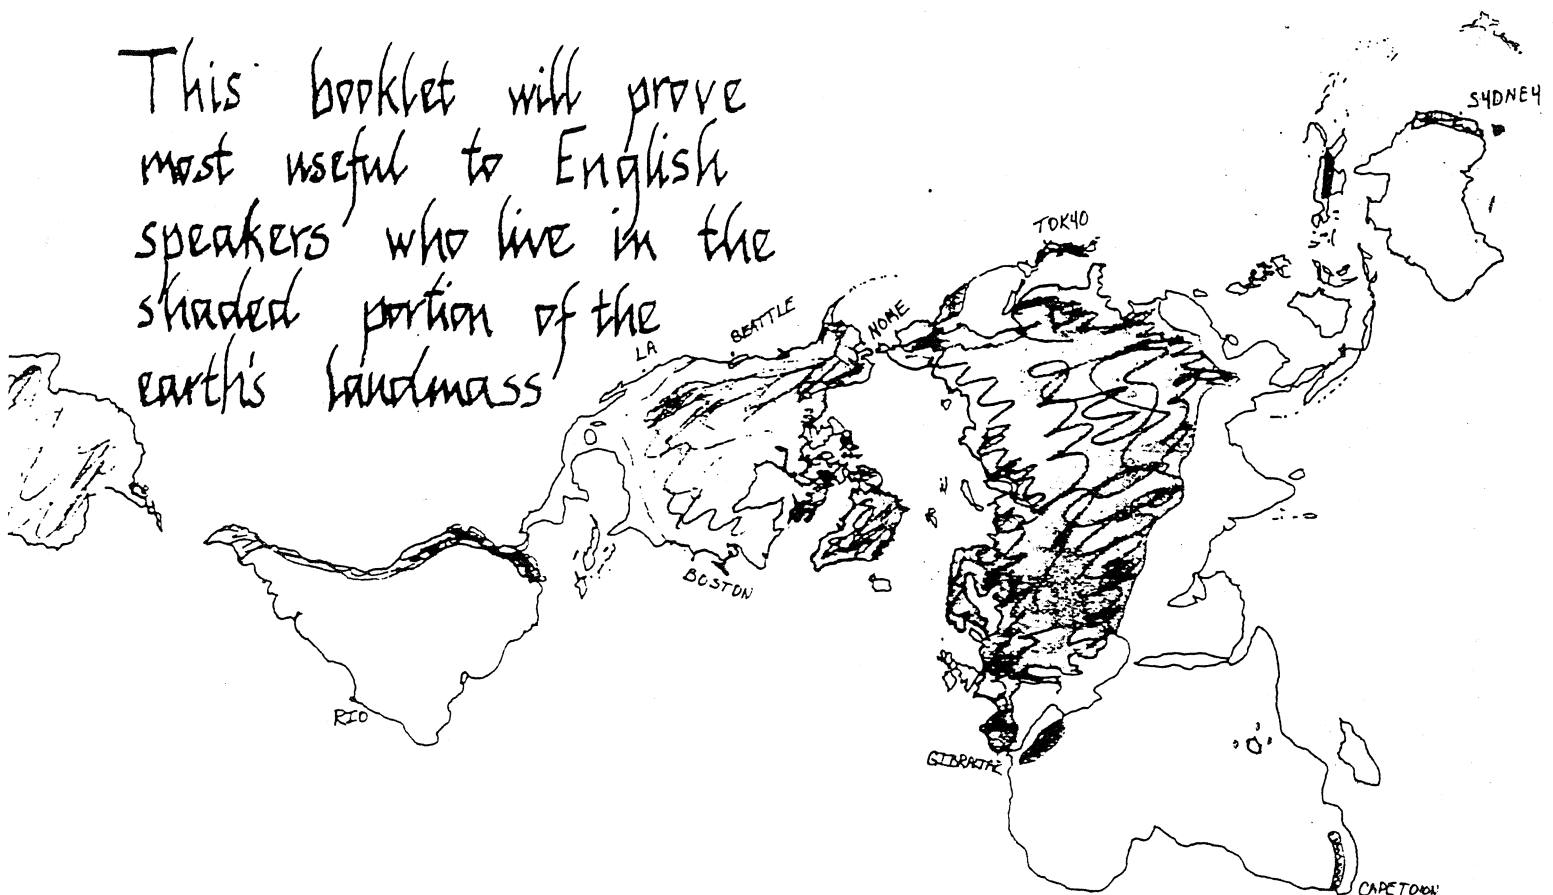 This booklet will prove
most useful to English
speakers who live in the
shaded portion of the
earth's landmass
SYDNEY
TOKYO
NOME
SEATTLE
LA
BOSTON
RIO
GIBRALTAR
CAPETOWN